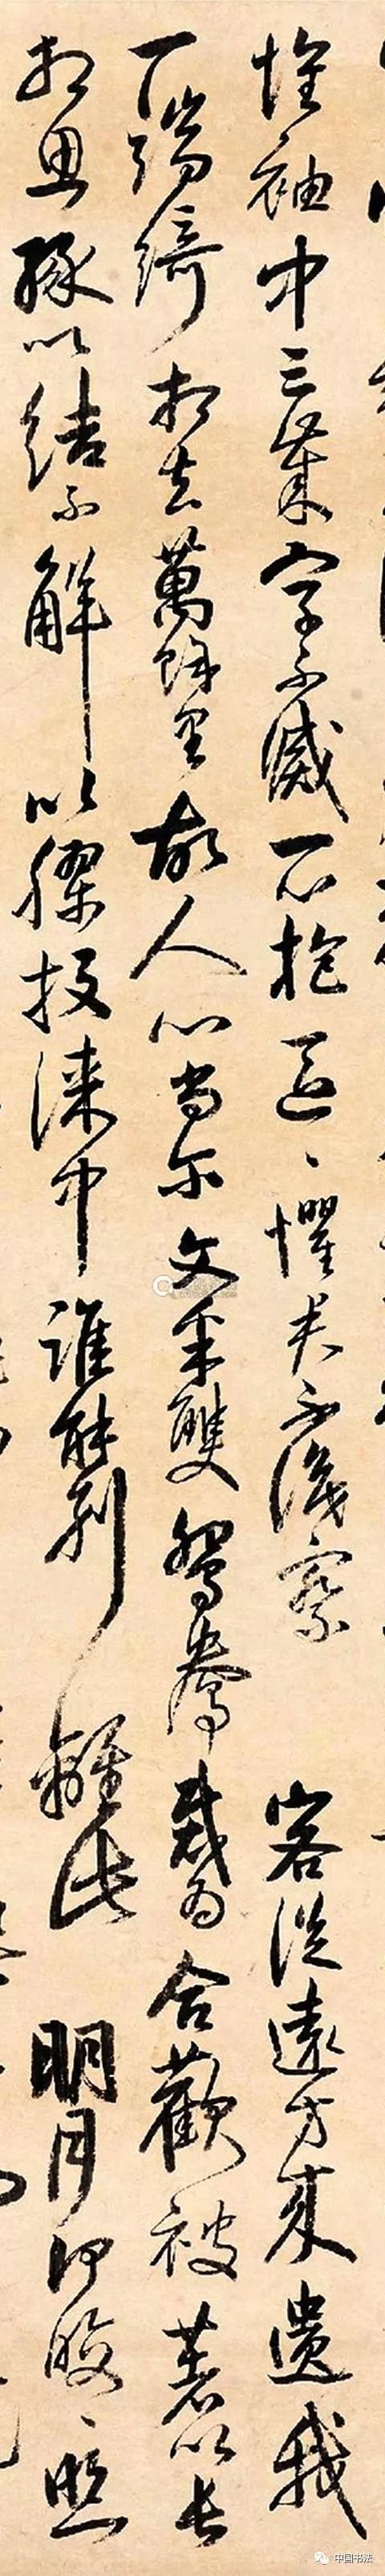 懷袖中三歲字不滅一心抱區〻懼君不識察 客從遠方來遺我
一端綺相去萬餘里故人心尚尔文采雙鴛鴦裁為合歡被著以長
相思緣以結不解以膠投漆中誰能別離此 明月何皎〻照
中国书法